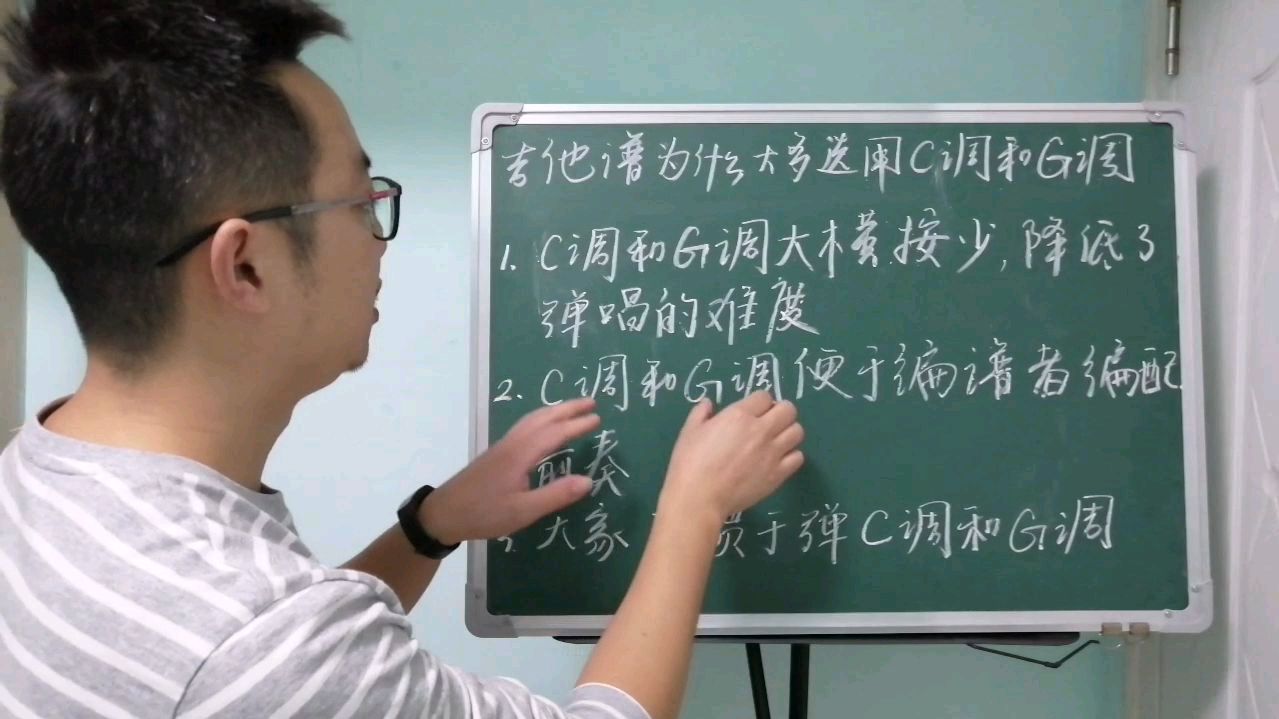 吉他谱为什么大多选用C调和G调
1. C调和G调大横按少,降低了
弹唱的难度
2. C调和G调便于编谱者编配
前奏
3. 大家 惯于弹C调和G调